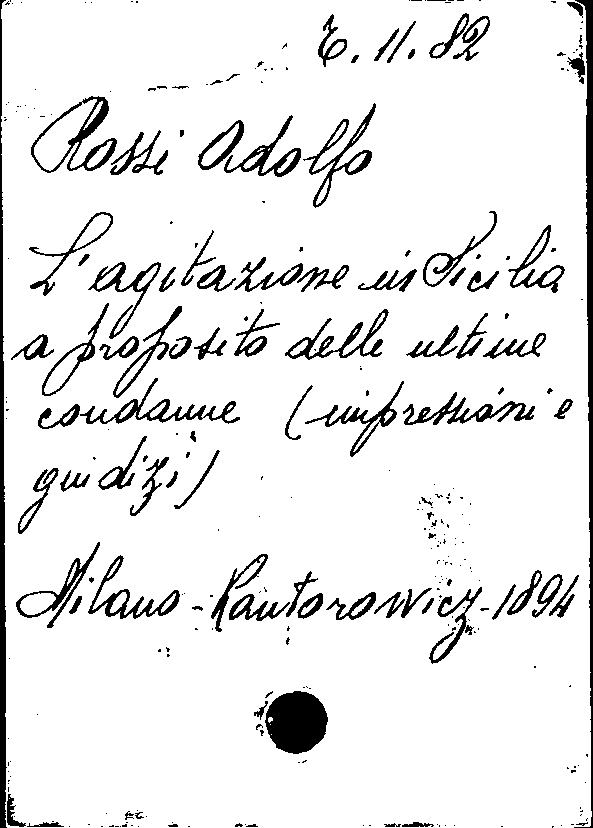 E.11.82
Rossi Adolfo
L'agitazione in Sicilia
a proposito delle ultime
condanne (impressioni e
guidizi)
Milano - Kantorowicz - 1894